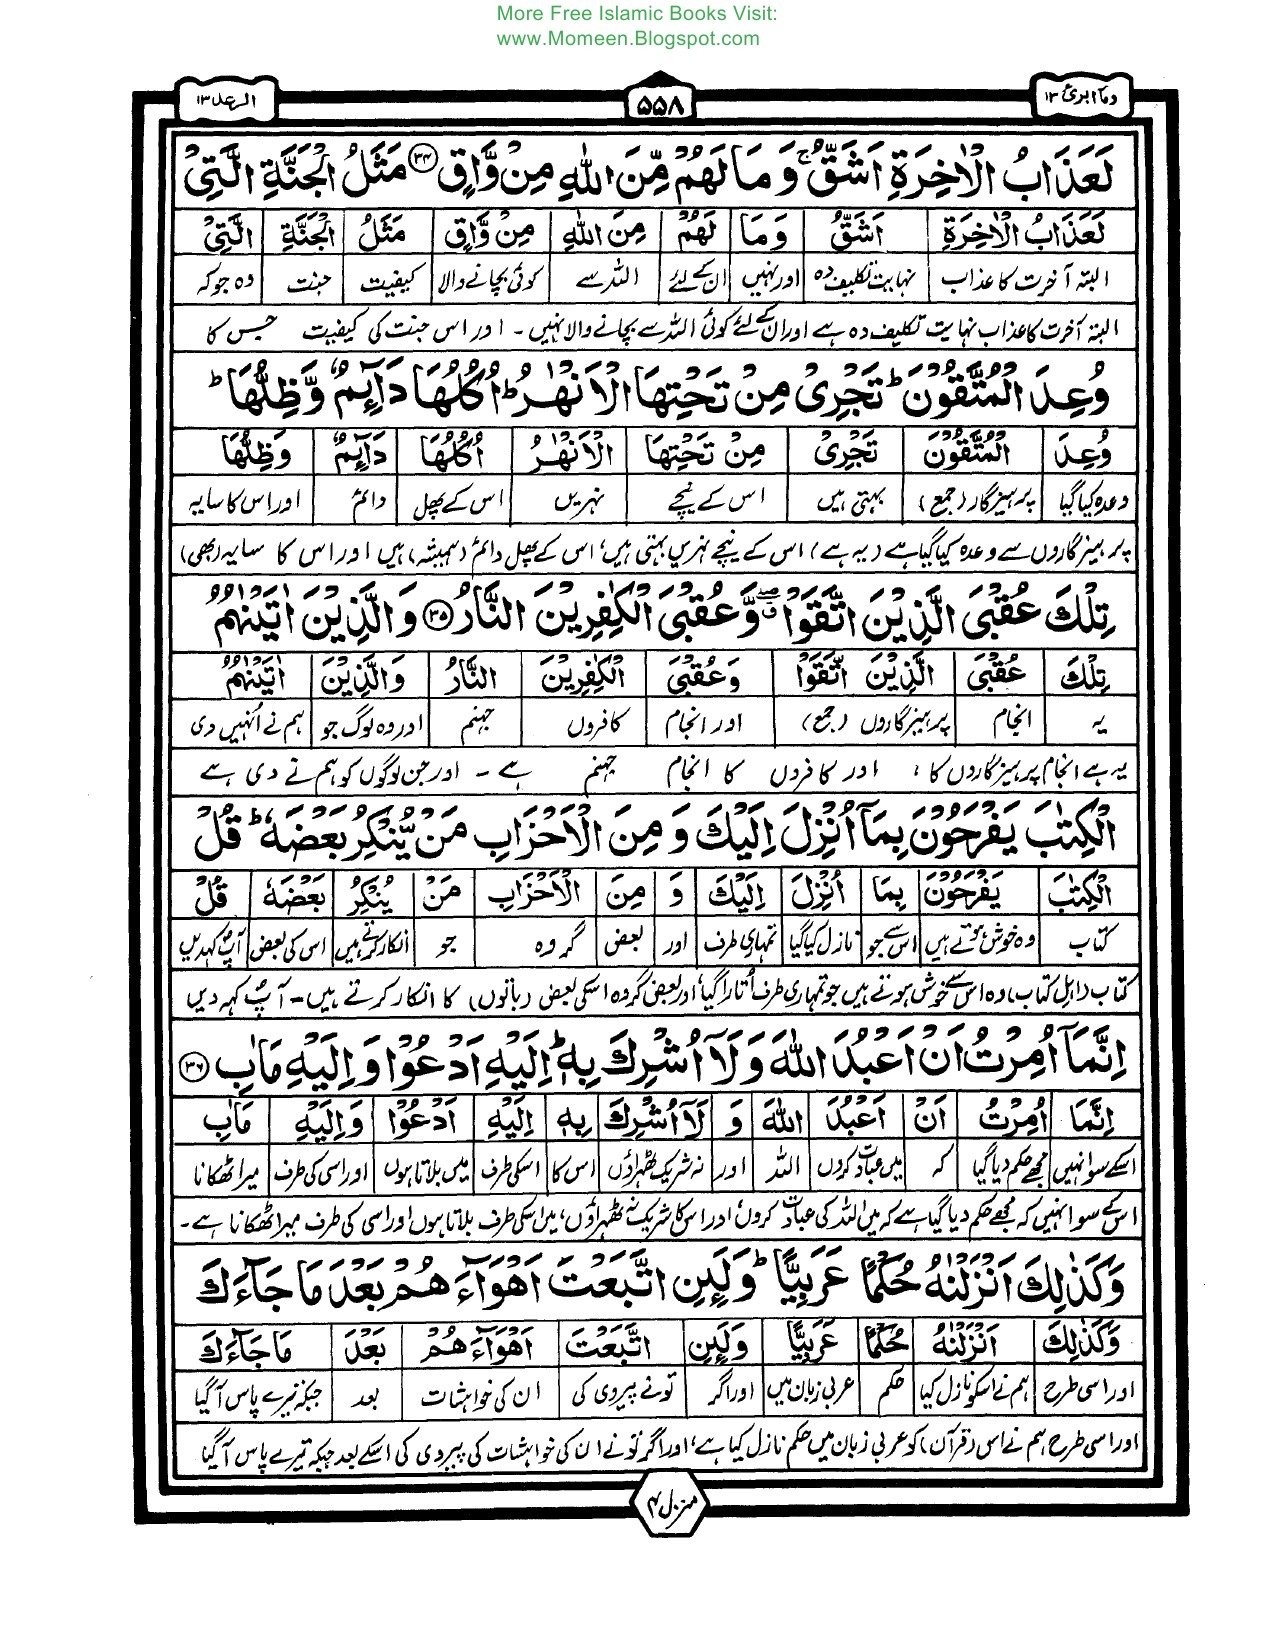 More Free Islamic Books Visit:
www.Momeen.Blogspot.com
وما ابرئ ۱۳
۵۵۸
الرعد ۱۳
لَعَذَابُ الْاٰخِرَةِ اَشَقُّ ۚ وَ مَا لَهُمْ مِّنَ اللّٰهِ مِنْ وَّاقٍ ۳۴ مَثَلُ الْجَنَّةِ الَّتِیْ
لَعَذَابُ الْاٰخِرَةِ اَشَقُّ وَ مَا لَهُمْ مِنَ اللّٰهِ مِنْ وَّاقٍ مَثَلُ الْجَنَّةِ الَّتِیْ
البتہ آخرت کا عذاب نہایت تکلیف دہ اور نہیں ان کے لئے اللہ سے کوئی بچانے والا کیفیت جنت وہ جو کہ
البتہ آخرت کا عذاب نہایت تکلیف دہ ہے اور ان کے لئے کوئی اللہ سے بچانے والا نہیں ۔ اور اس جنت کی کیفیت جس کا
وُعِدَ الْمُتَّقُوْنَ ؕ تَجْرِیْ مِنْ تَحْتِهَا الْاَنْهٰرُ ؕ اُكُلُهَا دَآىِٕمٌ وَّ ظِلُّهَا ؕ
وُعِدَ الْمُتَّقُوْنَ تَجْرِیْ مِنْ تَحْتِهَا الْاَنْهٰرُ اُكُلُهَا دَآىِٕمٌ وَظِلُّهَا
وعدہ کیا گیا پرہیزگار (جمع) بہتی ہیں اس کے نیچے نہریں اس کے پھل دائم اور اس کا سایہ
پرہیزگاروں سے وعدہ کیا گیا ہے (یہ ہے) اس کے نیچے نہریں بہتی ہیں، اس کے پھل دائم (ہمیشہ) ہیں اور اس کا سایہ (بھی)
تِلْكَ عُقْبَى الَّذِیْنَ اتَّقَوْا ۖۗ وَّ عُقْبَى الْكٰفِرِیْنَ النَّارُ ۳۵ وَ الَّذِیْنَ اٰتَیْنٰهُمُ
تِلْكَ عُقْبَى الَّذِیْنَ اتَّقَوْا وَعُقْبَى الْكٰفِرِیْنَ النَّارُ وَالَّذِیْنَ اٰتَیْنٰهُمُ
یہ انجام پرہیزگاروں (جمع) اور انجام کافروں جہنم اور وہ لوگ جو ہم نے اُنہیں دی
یہ ہے انجام پرہیزگاروں کا، اور کافروں کا انجام جہنم ہے ۔ اور جن لوگوں کو ہم نے دی ہے
الْكِتٰبَ یَفْرَحُوْنَ بِمَاۤ اُنْزِلَ اِلَیْكَ وَ مِنَ الْاَحْزَابِ مَنْ یُّنْكِرُ بَعْضَهٗ ؕ قُلْ
الْكِتٰبَ یَفْرَحُوْنَ بِمَا اُنْزِلَ اِلَیْكَ وَ مِنَ الْاَحْزَابِ مَنْ یُنْكِرُ بَعْضَهٗ قُلْ
کتاب وہ خوش ہوتے ہیں اس سے جو نازل کیا گیا تمہاری طرف اور بعض گروہ جو انکار کرتے ہیں اس کی بعض آپ کہدیں
کتاب (اہل کتاب) وہ اس سے خوش ہوتے ہیں جو تمہاری طرف اُتارا گیا، اور بعض گروہ اسکی بعض (باتوں) کا انکار کرتے ہیں ۔ آپ کہہ دیں
اِنَّمَاۤ اُمِرْتُ اَنْ اَعْبُدَ اللّٰهَ وَ لَاۤ اُشْرِكَ بِهٖ ؕ اِلَیْهِ اَدْعُوْا وَ اِلَیْهِ مَاٰبِ ۳۶
اِنَّمَا اُمِرْتُ اَنْ اَعْبُدَ اللّٰهَ وَ لَاۤ اُشْرِكَ بِهٖ اِلَیْهِ اَدْعُوْا وَاِلَیْهِ مَاٰبِ
اسکے سوا نہیں مجھے حکم دیا گیا کہ میں عبادت کروں اللہ اور نہ شریک ٹھہراؤں اس کا اسکی طرف میں بلاتا ہوں اور اسی کی طرف میرا ٹھکانا
اس کے سوا نہیں کہ مجھے حکم دیا گیا ہے کہ میں اللہ کی عبادت کروں اور اس کا شریک نہ ٹھہراؤں، میں اسکی طرف بلاتا ہوں اور اسی کی طرف میرا ٹھکانا ہے ۔
وَ كَذٰلِكَ اَنْزَلْنٰهُ حُكْمًا عَرَبِیًّا ؕ وَ لَىِٕنِ اتَّبَعْتَ اَهْوَآءَهُمْ بَعْدَ مَا جَآءَكَ
وَكَذٰلِكَ اَنْزَلْنٰهُ حُكْمًا عَرَبِیًّا وَلَىِٕنِ اتَّبَعْتَ اَهْوَآءَهُمْ بَعْدَ مَا جَآءَكَ
اور اسی طرح ہم نے اسکو نازل کیا حکم عربی زبان میں اور اگر تو نے پیروی کی ان کی خواہشات بعد جبکہ تیرے پاس آ گیا
اور اسی طرح ہم نے اس (قرآن) کو عربی زبان میں حکم نازل کیا ہے، اور اگر تو نے ان کی خواہشات کی پیروی کی اسکے بعد جبکہ تیرے پاس آ گیا
منزل ۳